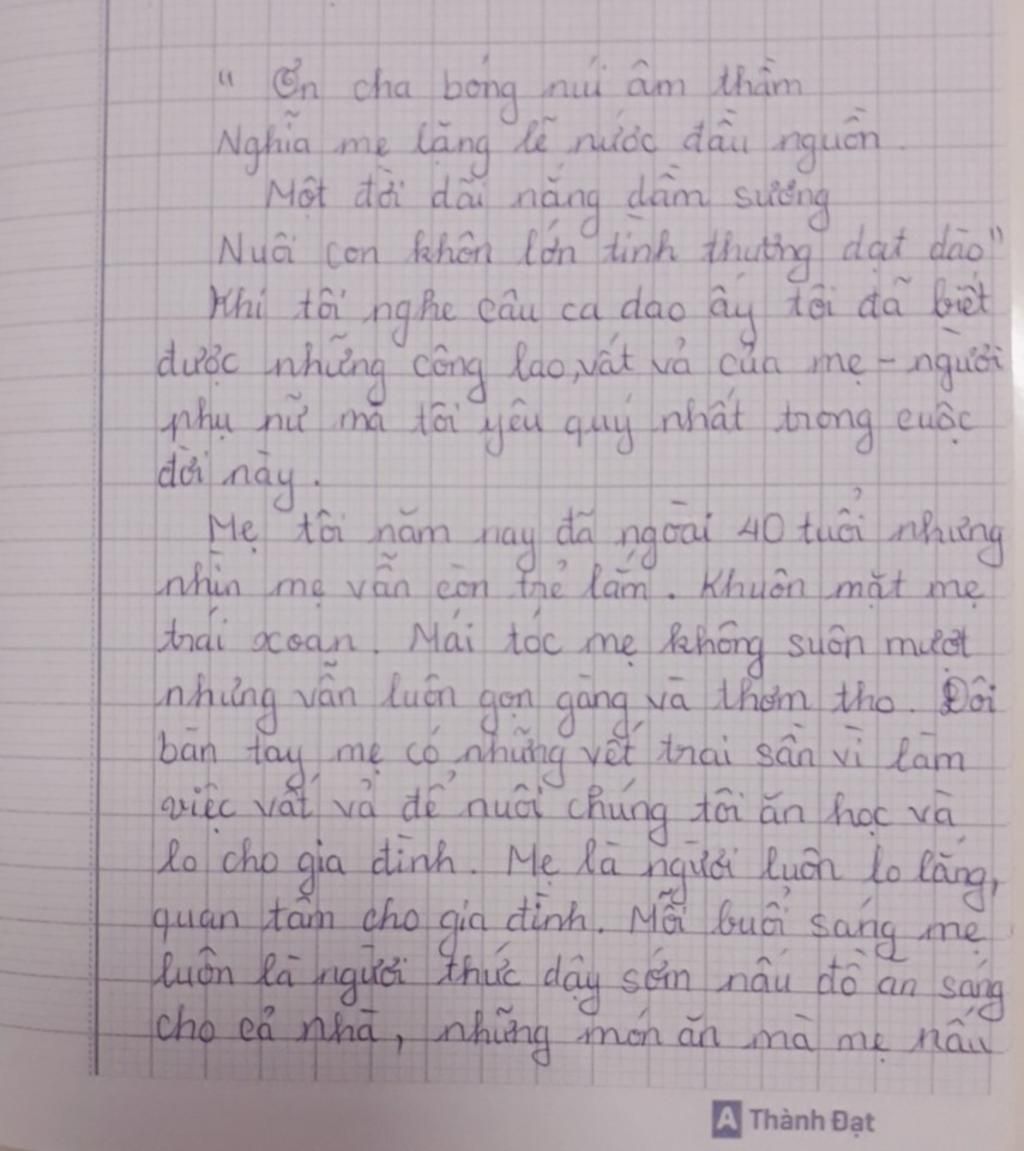 “ Ơn cha bóng núi âm thầm
Nghĩa mẹ lặng lẽ nước đầu nguồn.
Một đời dãi nắng dầm sương
Nuôi con khôn lớn tình thương dạt dào”
Khi tôi nghe câu ca dao ấy tôi đã biết
được những công lao, vất vả của mẹ - người
phụ nữ mà tôi yêu quý nhất trong cuộc
đời này.
Mẹ tôi năm nay đã ngoài 40 tuổi nhưng
nhìn mẹ vẫn còn trẻ lắm. Khuôn mặt mẹ
trái xoan. Mái tóc mẹ không suôn mượt
nhưng vẫn luôn gọn gàng và thơm tho. Đôi
bàn tay mẹ có những vết trai sần vì làm
việc vất vả để nuôi chúng tôi ăn học và
lo cho gia đình. Mẹ là người luôn lo lắng,
quan tâm cho gia đình. Mỗi buổi sáng mẹ
luôn là người thức dậy sớm nấu đồ ăn sáng
cho cả nhà, những món ăn mà mẹ nấu
A Thành Đạt